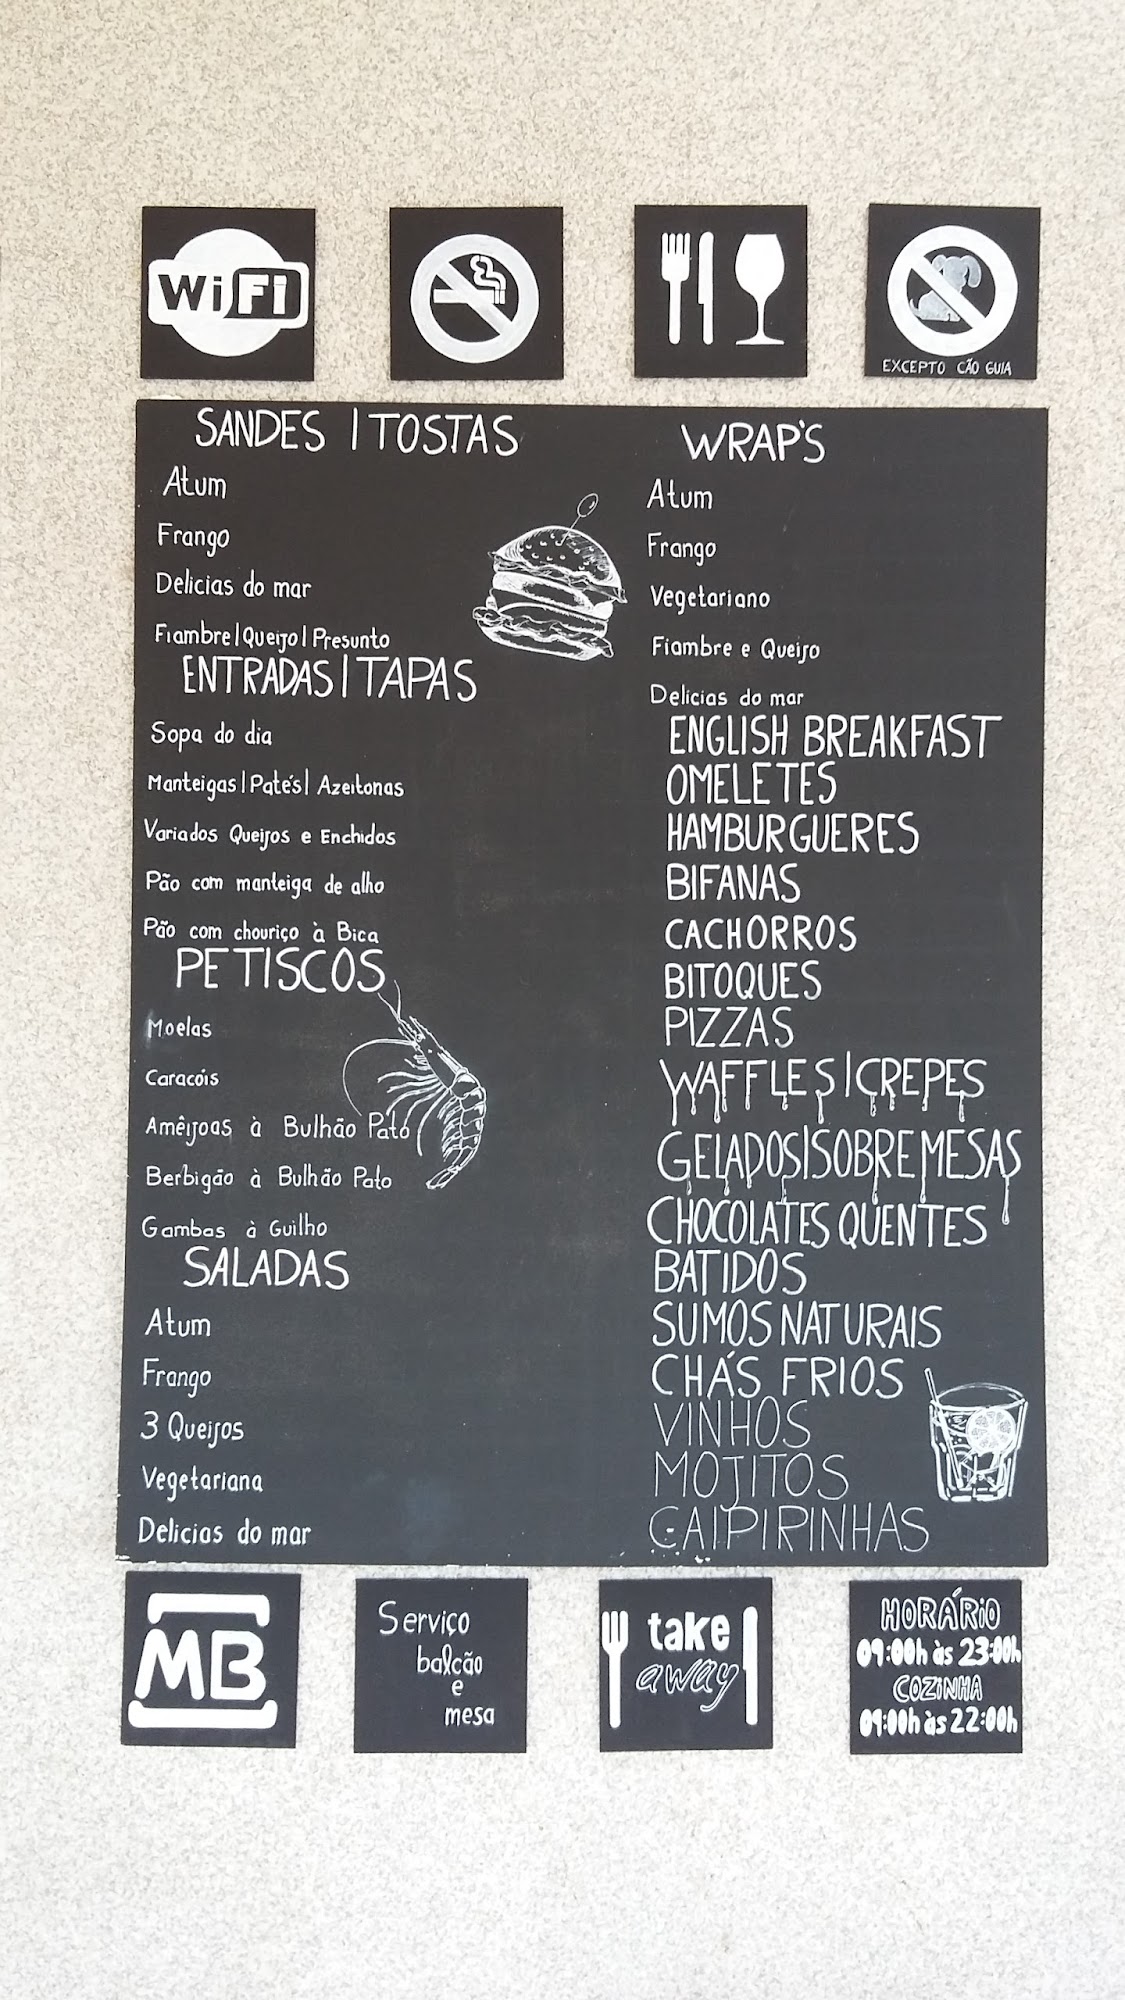 WiFi
EXCEPTO CÃO GUIA
SANDES | TOSTAS
Atum
Frango
Delicias do mar
Fiambre|Queijo|Presunto
ENTRADAS|TAPAS
Sopa do dia
Manteigas|Patés| Azeitonas
Variados Queijos e Enchidos
Pão com manteiga de alho
Pão com chouriço à Bica
PETISCOS
Moelas
Caracóis
Amêijoas à Bulhão Pato
Berbigão à Bulhão Pato
Gambas à Guilho
SALADAS
Atum
Frango
3 Queijos
Vegetariana
Delicias do mar
WRAP'S
Atum
Frango
Vegetariano
Fiambre e Queijo
Delicias do mar
ENGLISH BREAKFAST
OMELETES
HAMBURGUERES
BIFANAS
CACHORROS
BITOQUES
PIZZAS
WAFFLES|CREPES
GELADOS|SOBREMESAS
CHOCOLATES QUENTES
BATIDOS
SUMOS NATURAIS
CHÁS FRIOS
VINHOS
MOJITOS
CAIPIRINHAS
MB
Serviço
balcão
e
mesa
take
away
HORÁRiO
09:00h às 23:00h
COZiNHA
09:00h às 22:00h